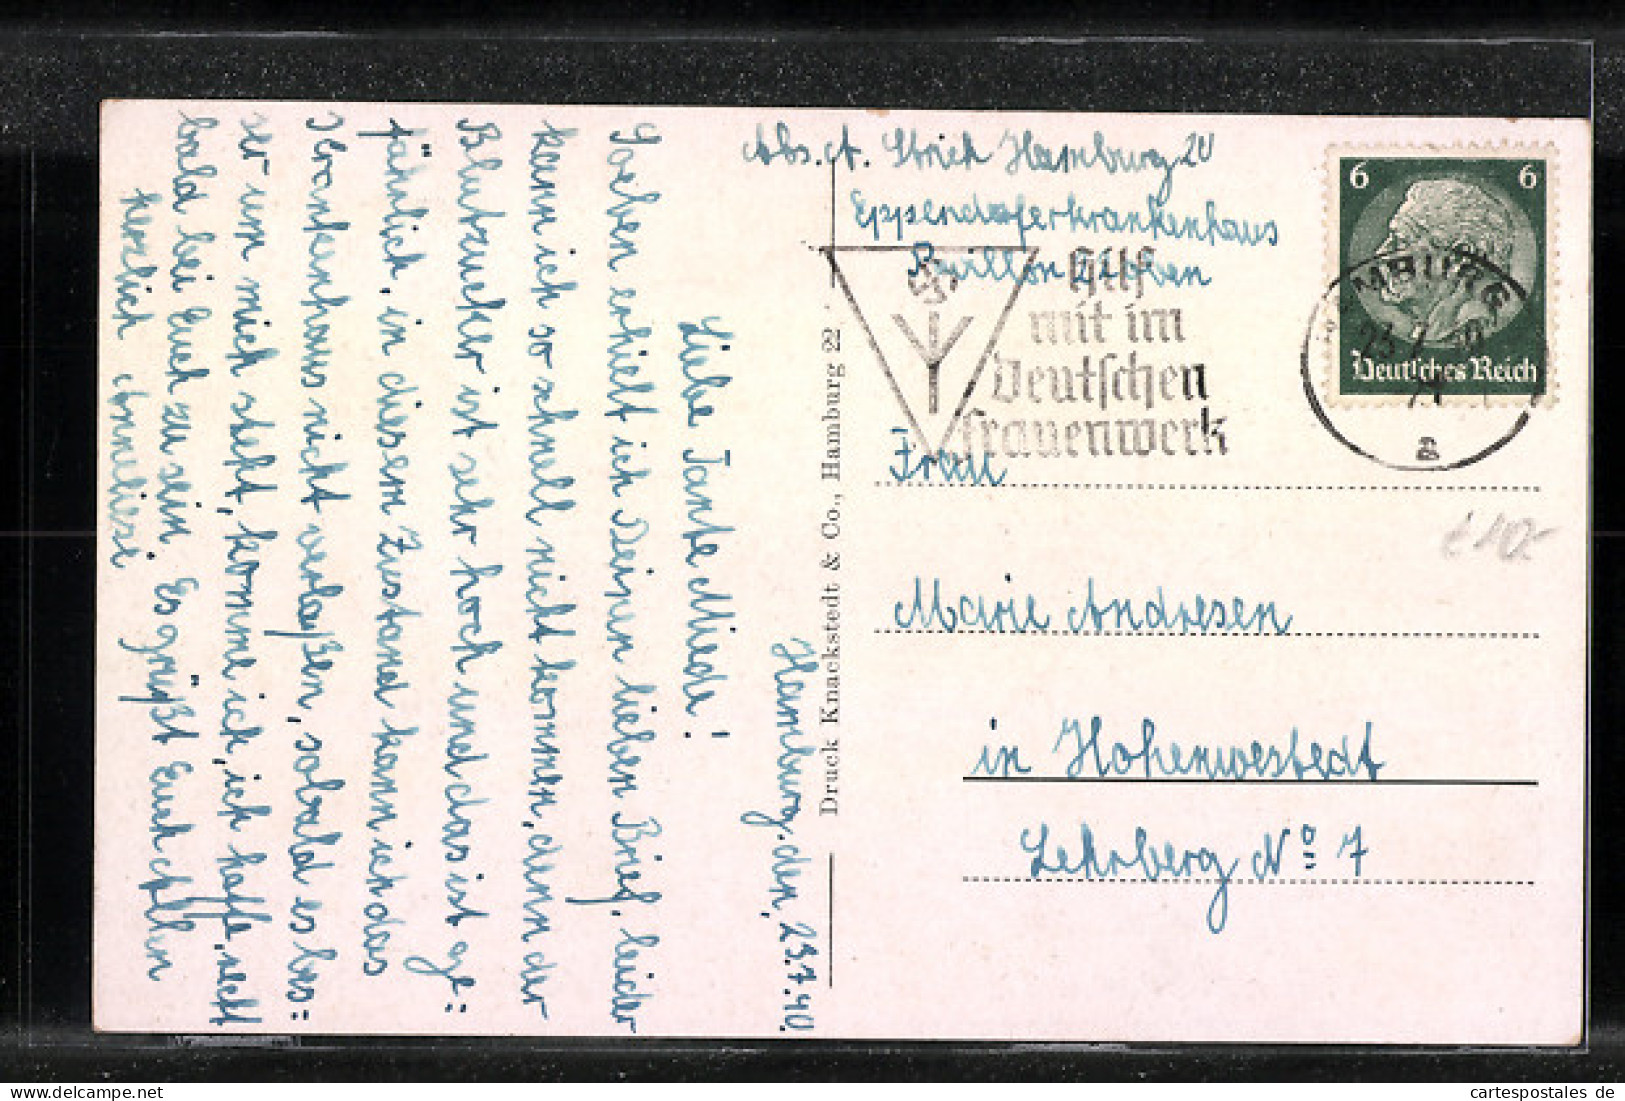 Hamburg, den, 23.7.40.
Liebe Tante Miede!
Soeben erhielt ich Deinen lieben Brief, leider
kann ich so schnell nicht kommen, denn der
Blutzucker ist sehr hoch und das ist ge=
fährlich, in diesem Zustand kann ich das
Krankenhaus nicht verlaßen, sobald es bes=
ser um mich steht, komme ich, ich hoffe, recht
bald bei Euch zu sein. Es grüßt Euch Allen
herzlich Anneliesi
Druck Knackstedt & Co., Hamburg 22
Abs. A. Strich Hamburg 20
Eppendorferkrankenhaus
Pavillon oben
6 6
Deutsches Reich
HAMBURG
23.7.40
a
Hilf
mit im
Deutschen
Frauenwerk
Frau
Marie Andresen
in Hohenwestedt
Lehrberg No 7
host-memories
cartespostales de